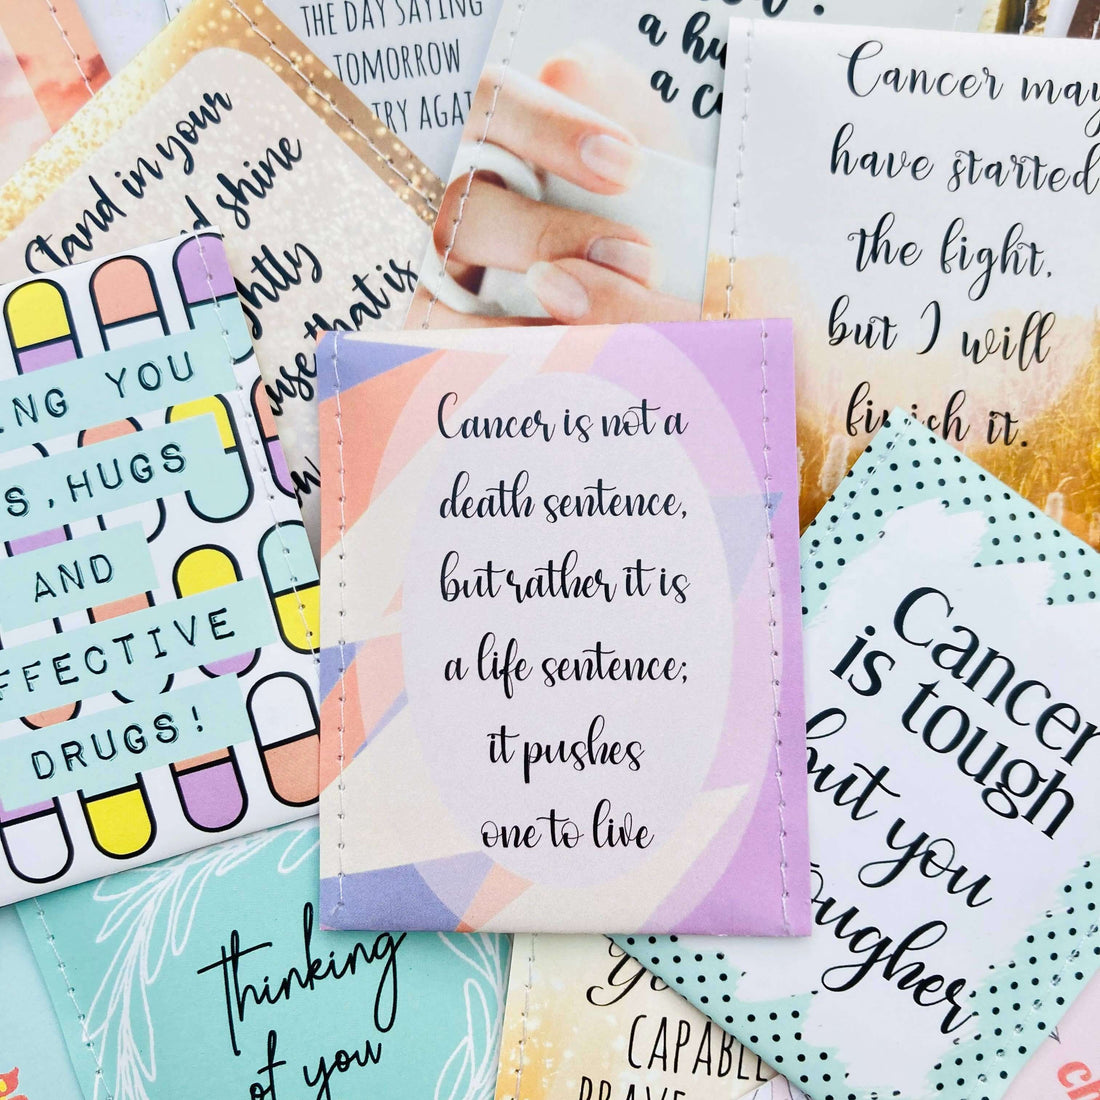 THE DAY SAYING
TOMORROW
TRY AGAI
a
a
Cancer may
have started
the fight,
but I will
finish it.
Stand in your
shine
that is
NG YOU
S, HUGS
AND
FFECTIVE
DRUGS!
Cancer is not a
death sentence,
but rather it is
a life sentence;
it pushes
one to live
Cancer
is tough
but you
tougher
thinking
of you
CAPABLE
BRAVE